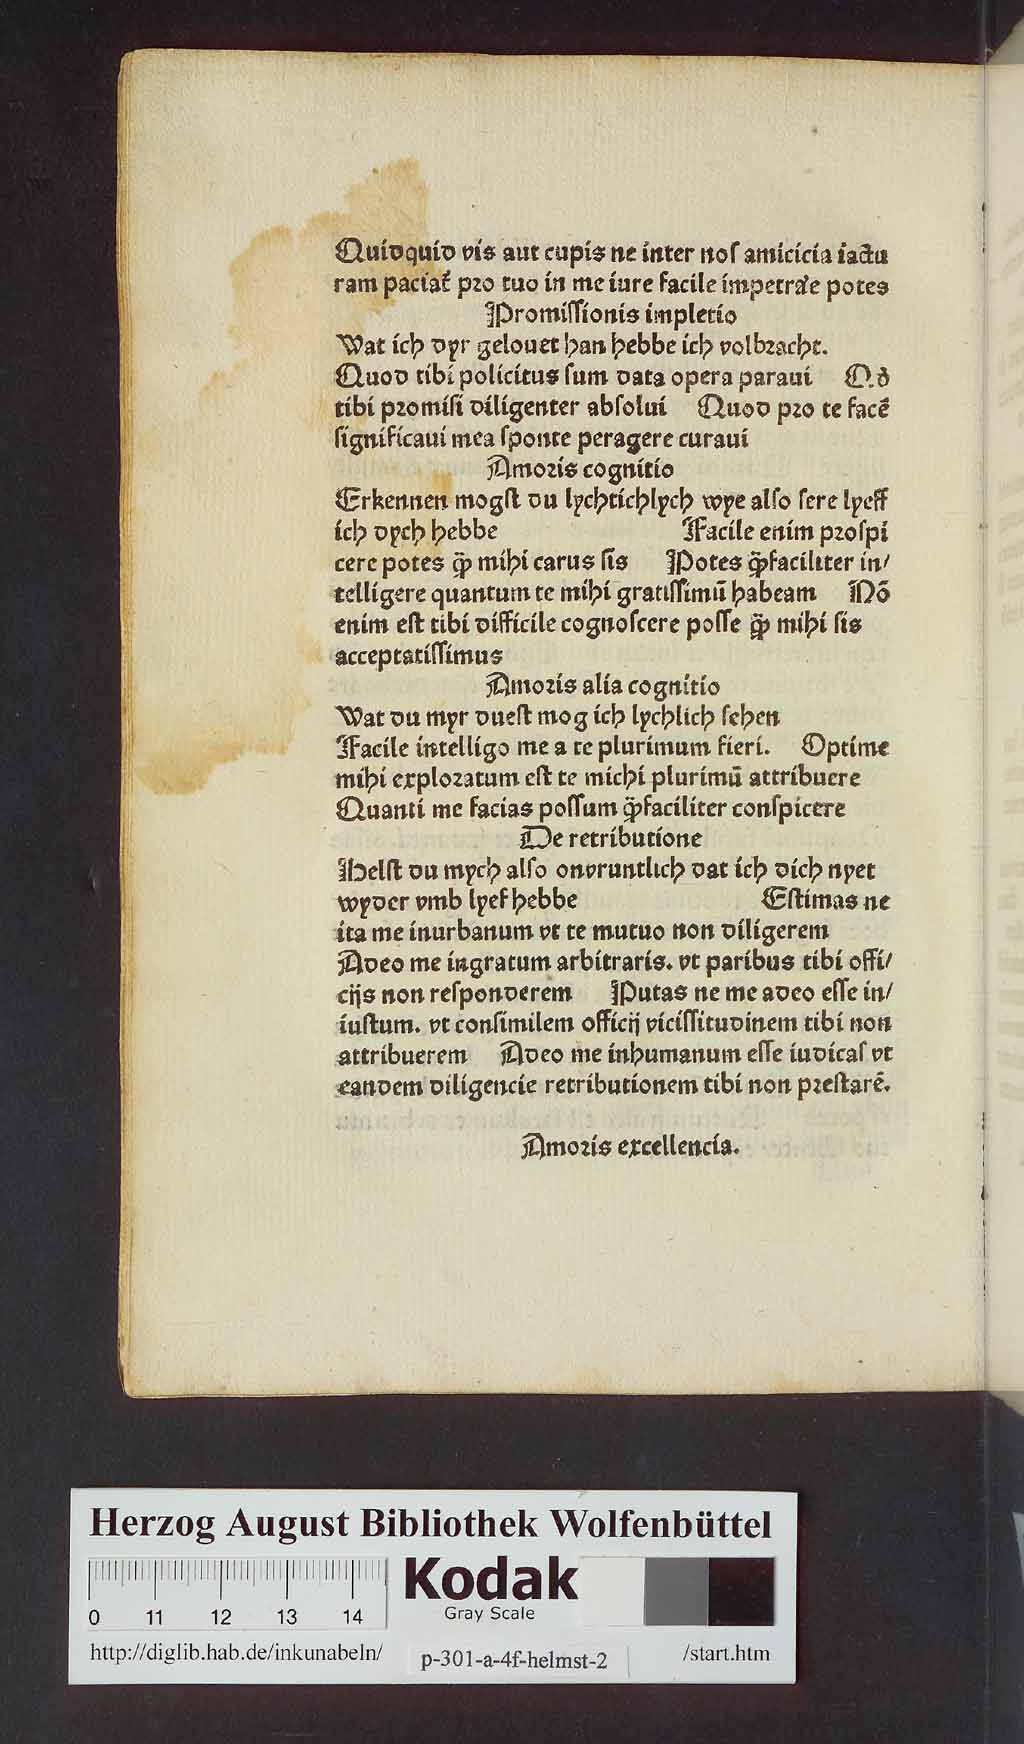 Quidquid vis aut cupis ne inter nos amicicia iactu
ram paciat᷑ pro tuo in me iure facile impetrare potes
Promiſſionis impletio
Wat ich dyr gelouet han hebbe ich volbracht.
Quod tibi policitus ſum data opera paraui Q.d
tibi promiſi diligenter abſolui Quod pro te facē
ſignificaui mea ſponte peragere curaui
Amoris cognitio
Erkennen mogſt du lychtichlych wye alſo ſere lyeff
ich dych hebbe Facile enim proſpi
cere potes q̄ꝫ mihi carus ſis Potes q̄ꝫfaciliter in/
telligere quantum te mihi gratiſſimū habeam Nō
enim eſt tibi difficile cognoſcere poſſe q̄ꝫ mihi ſis
acceptatiſſimus
Amoris alia cognitio
Wat du myr dueſt mog ich lychlich ſehen
Facile intelligo me a te plurimum fieri. Optime
mihi exploratum eſt te michi plurimū attribuere
Quanti me facias poſſum q̄ꝫfaciliter conſpicere
De retributione
Helſt du mych alſo onvruntlich dat ich dich nyet
wyder vmb lyef hebbe Eſtimas ne
ita me inurbanum vt te mutuo non diligerem
Adeo me ingratum arbitraris. vt paribus tibi offi/
cijs non reſponderem Putas ne me adeo eſſe in/
iuſtum. vt conſimilem officij viciſſitudinem tibi non
attribuerem Adeo me inhumanum eſſe iudicaſ vt
eandem diligencie retributionem tibi non preſtarē.
Amoris excellencia.
Herzog August Bibliothek Wolfenbüttel
Kodak
Gray Scale
0 11 12 13 14
http://diglib.hab.de/inkunabeln/ p-301-a-4f-helmst-2 /start.htm